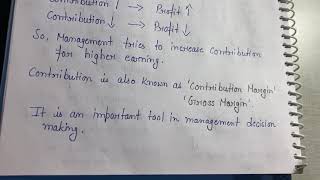 Contribution ↑ → Profit ↑
Contribution ↓ → Profit ↓
So, Management tries to increase Contribution
for higher earning.
Contribution is also known as 'Contribution Margin'
'Gross Margin'.
It is an important tool in management decision
making.